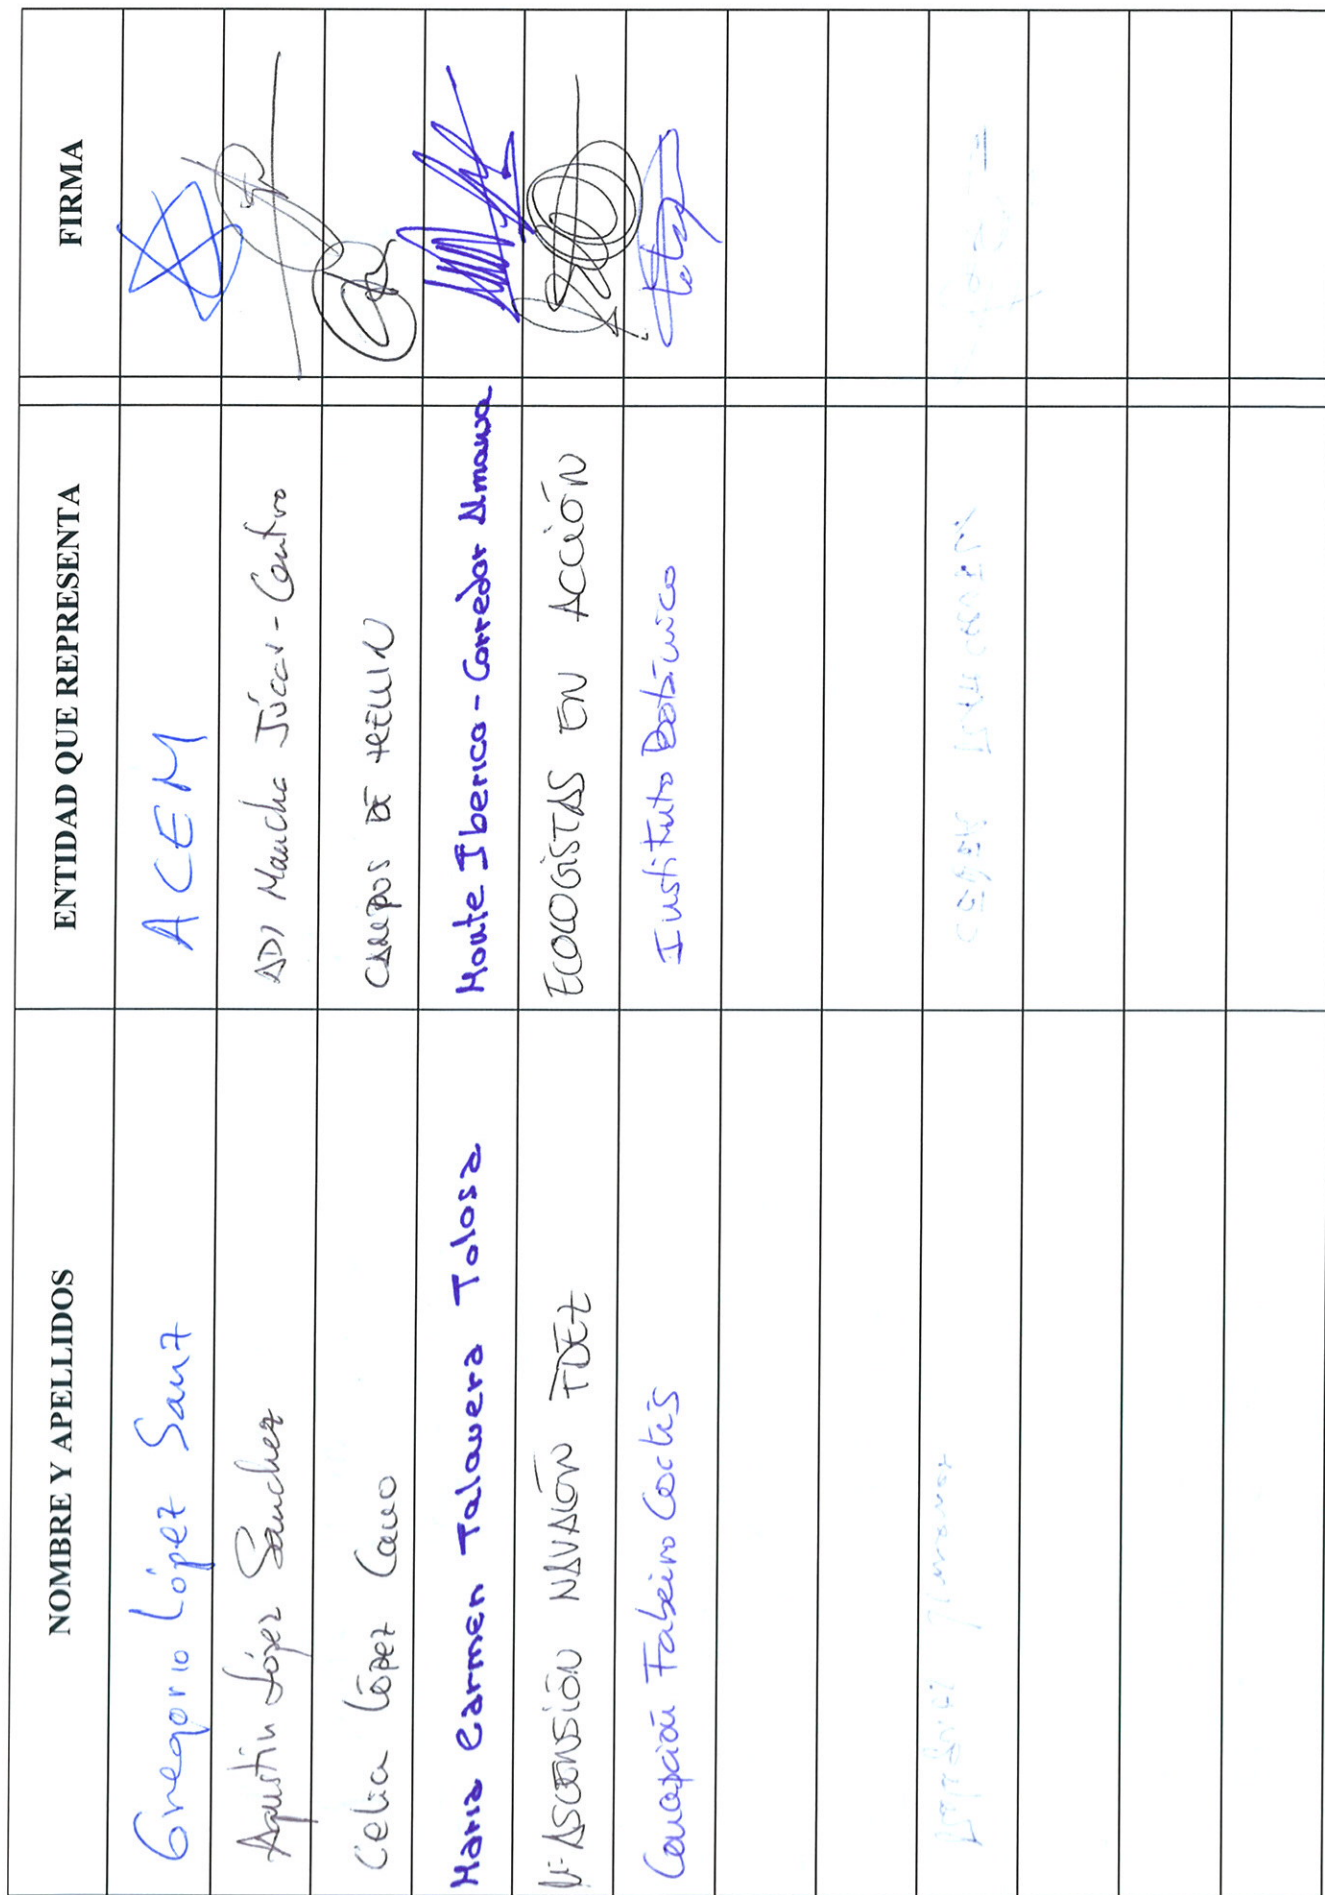 NOMBRE Y APELLIDOS ENTIDAD QUE REPRESENTA FIRMA
Gregorio López Sanz ACEM
Agustín López Sánchez ADI Mancha Júcar-Centro
Celia López Cano CAMPOS DE HELLIN
Maria Carmen Talavera Tolosa Monte Iberico-Corredor Almansa
Mª ASCENSIÓN NAVALÓN FDEZ ECOLOGISTAS EN ACCIÓN
Concepción Fabeiro Cortés Instituto Botánico